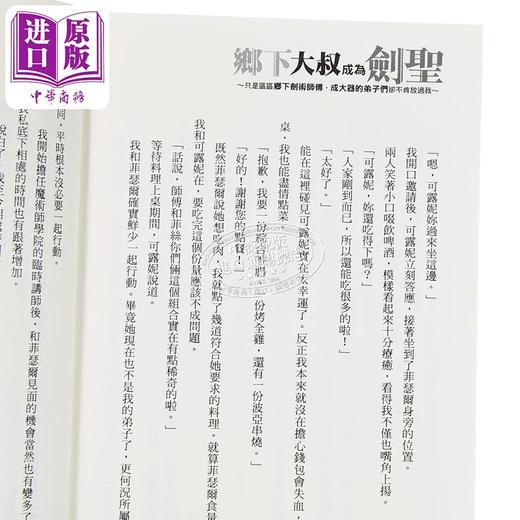 进口原版
中华商务
鄉下大叔成為劍聖
～只是區區鄉下劍術師傅，成大器的弟子們卻不肯放過我～
「嗯，可露妮妳過來坐這邊。」
我開口邀請後，可露妮立刻答應，接著坐到了菲瑟爾身旁的位置。
兩人笑著小口啜飲啤酒，模樣看起來十分療癒，看得我不僅也嘴角上揚。
「可露妮，妳還吃得下嗎？」
「人家剛到而已，所以還能吃很多的啦！」
「太好了。」
能在這裡碰見可露妮實在太幸運了。反正我本來就沒在擔心錢包會失血，
桌，我也能盡情點菜。
「抱歉，我要一份綜合
份烤全雞，還有一份波亞串燒。」
「好的！謝謝您的點餐！」
既然菲瑟爾說她想吃肉，我就點了幾道符合她要求的料理。就算菲瑟爾食量
我和可露妮在，要吃完這個份量應該不成問題。
「話說，師傅和菲絲你們倆這個組合實在有點稀奇的啦。」
等待料理上桌期間，可露妮說道。
我和菲瑟爾確實鮮少一起行動。畢竟她現在也不是我的弟子了，更何況所屬
同，平時根本沒必要一起行動。
我開始擔任魔術師學院的臨時講師後，和菲瑟爾見面的機會當然也有變多了
私底下相處的時間也有跟著增加。